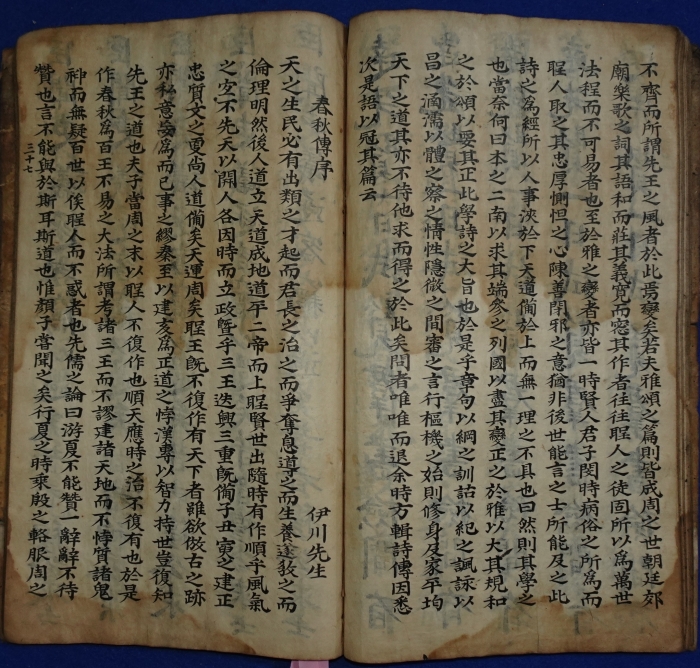 不齊而所謂先王之風者於此焉變矣若夫雅頌之篇則皆成周之世朝廷郊
廟樂歌之詞其語和而莊其義寬而宻其作者往往聖人之徒固所以為萬世
法程而不可易者也至於雅之變者亦皆一時賢人君子閔時病俗之所為而
聖人取之其忠厚惻怛之心陳善閉邪之意猶非後世能言之士所能及之此
詩之為經所以人事浹於下天道備於上而無一理之不具也曰然則其學之
也當奈何曰本之二南以求其端參之列國以盡其變正之於雅以大其規和
之於頌以要其正此學詩之大旨也於是乎章句以綱之訓詁以紀之諷詠以
昌之涵濡以體之察之情性隱微之間審之言行樞機之始則修身及家平均
天下之道其亦不待他求而得之於此矣問者唯唯而退余時方輯詩傳因悉
次是語以冠其篇云
春秋傳序
伊川先生
天之生民必有出類之才起而君長之治之而爭奪息導之而生養遂敎之而
倫理明然後人道立天道成地道平二帝而上聖賢世出隨時有作順乎風氣
之宜不先天以開人各因時而立政曁乎三王迭興三重旣備子丑寅之建正
忠質文之更尚人道備矣天運周矣聖王旣不復作有天下者雖欲倣古之跡
亦私意妄為而已事之繆秦至以建亥為正道之悖漢專以智力持世豈復知
先王之道也夫子當周之末以聖人不復作也順天應時之治不復有也於是
作春秋為百王不易之大法所謂考諸三王而不謬建諸天地而不悖質諸鬼
神而無疑百世以俟聖人而不惑者也先儒之論曰游夏不能贊一辭辭不待
贊也言不能與於斯耳斯道也惟顔子嘗聞之矣行夏之時乘殷之輅服周之
三十七